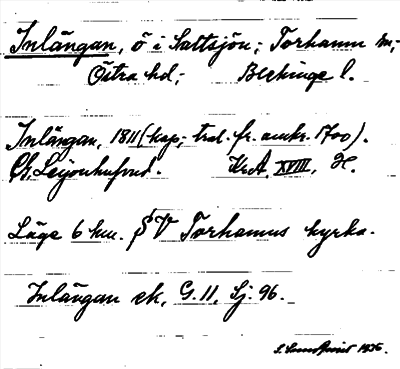 Inlängan, ö i Saltsjön; Torhamn sn;
Östra hd; Blekinge l.
Inlängan, 1811 (kop; trol. fr. omkr. 1700).
G. Leijonhufvud. KrA. XVIII,
Läge 6 km. V Torhamns kyrka.
Inlängan ek, G. 11, Sj. 96.